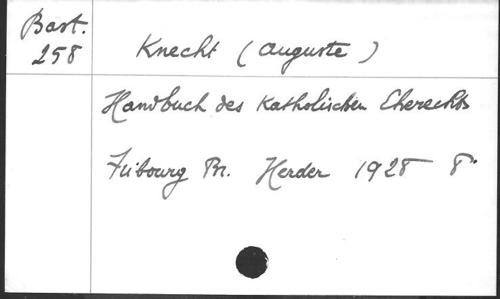 Bart.
258
Knecht (Auguste)
Handbuch des Katholischen Eherechts
Fribourg Br. Herder 1928 8°